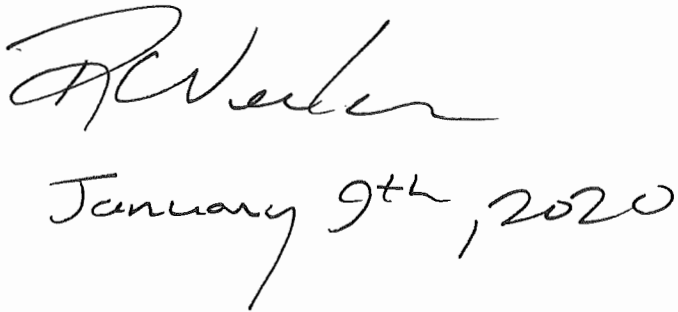 January 9th, 2020